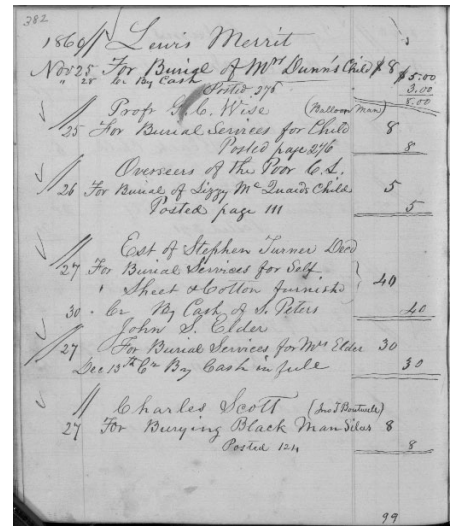 382
1860 Lewis Merrit
Nov 25 For Burial of Mrs Dunn's Child $ 8
" 25 Cr By Cash $5.00
Posted 276 3.00
8.00
Profr G. C. Wise (Balloon Man)
25 For Burial Services for Child 8
Posted page 276 8
Overseers of the Poor C. S.
26 For Burial of Lizzy McQuaids Child 5
Posted page 111 5
Est of Stephen Turner Decd
27 For Burial Services for Self
" Sheet & Cotton furnishd } 40
30 " Cr By Cash of S. Peters 40
John S. Elder
27 For Burial Services for Mrs Elder 30
Dec 13th Cr By Cash in full 30
Charles Scott (Jno T Boutwell)
27 For Burying Black Man Silas 8
Posted 124 8
99